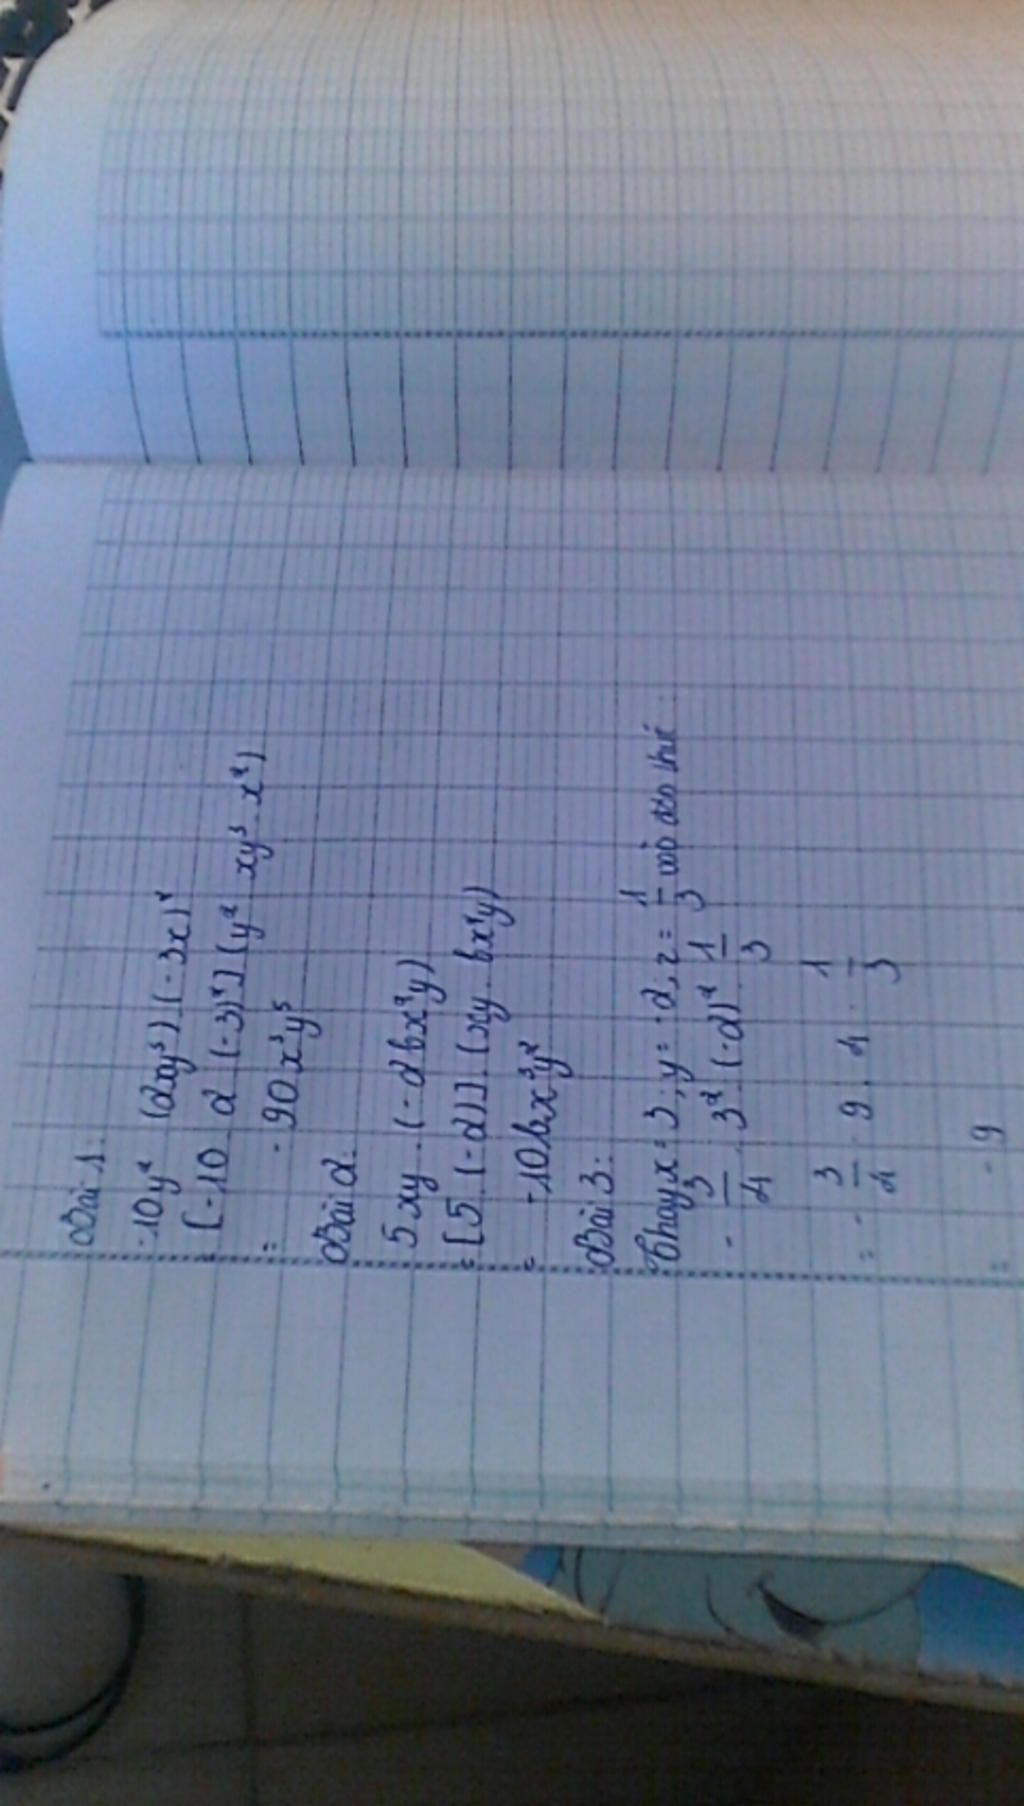 Bài 1:
-10y² (2xy³) (-3x)²
[-10. 2 (-3)²] (y² xy³. x²)
= -90x³y⁵
Bài 2:
5xy. (-2bx²y)
= [5. (-2)]. (xy. bx²y)
= -10bx³y²
Bài 3:
Thay x = 3; y = -2, z = 1/3 vào thì
- 3/4 . 3² . (-2)² . 1/3
= - 3/4 . 9 . 4 . 1/3
= -9